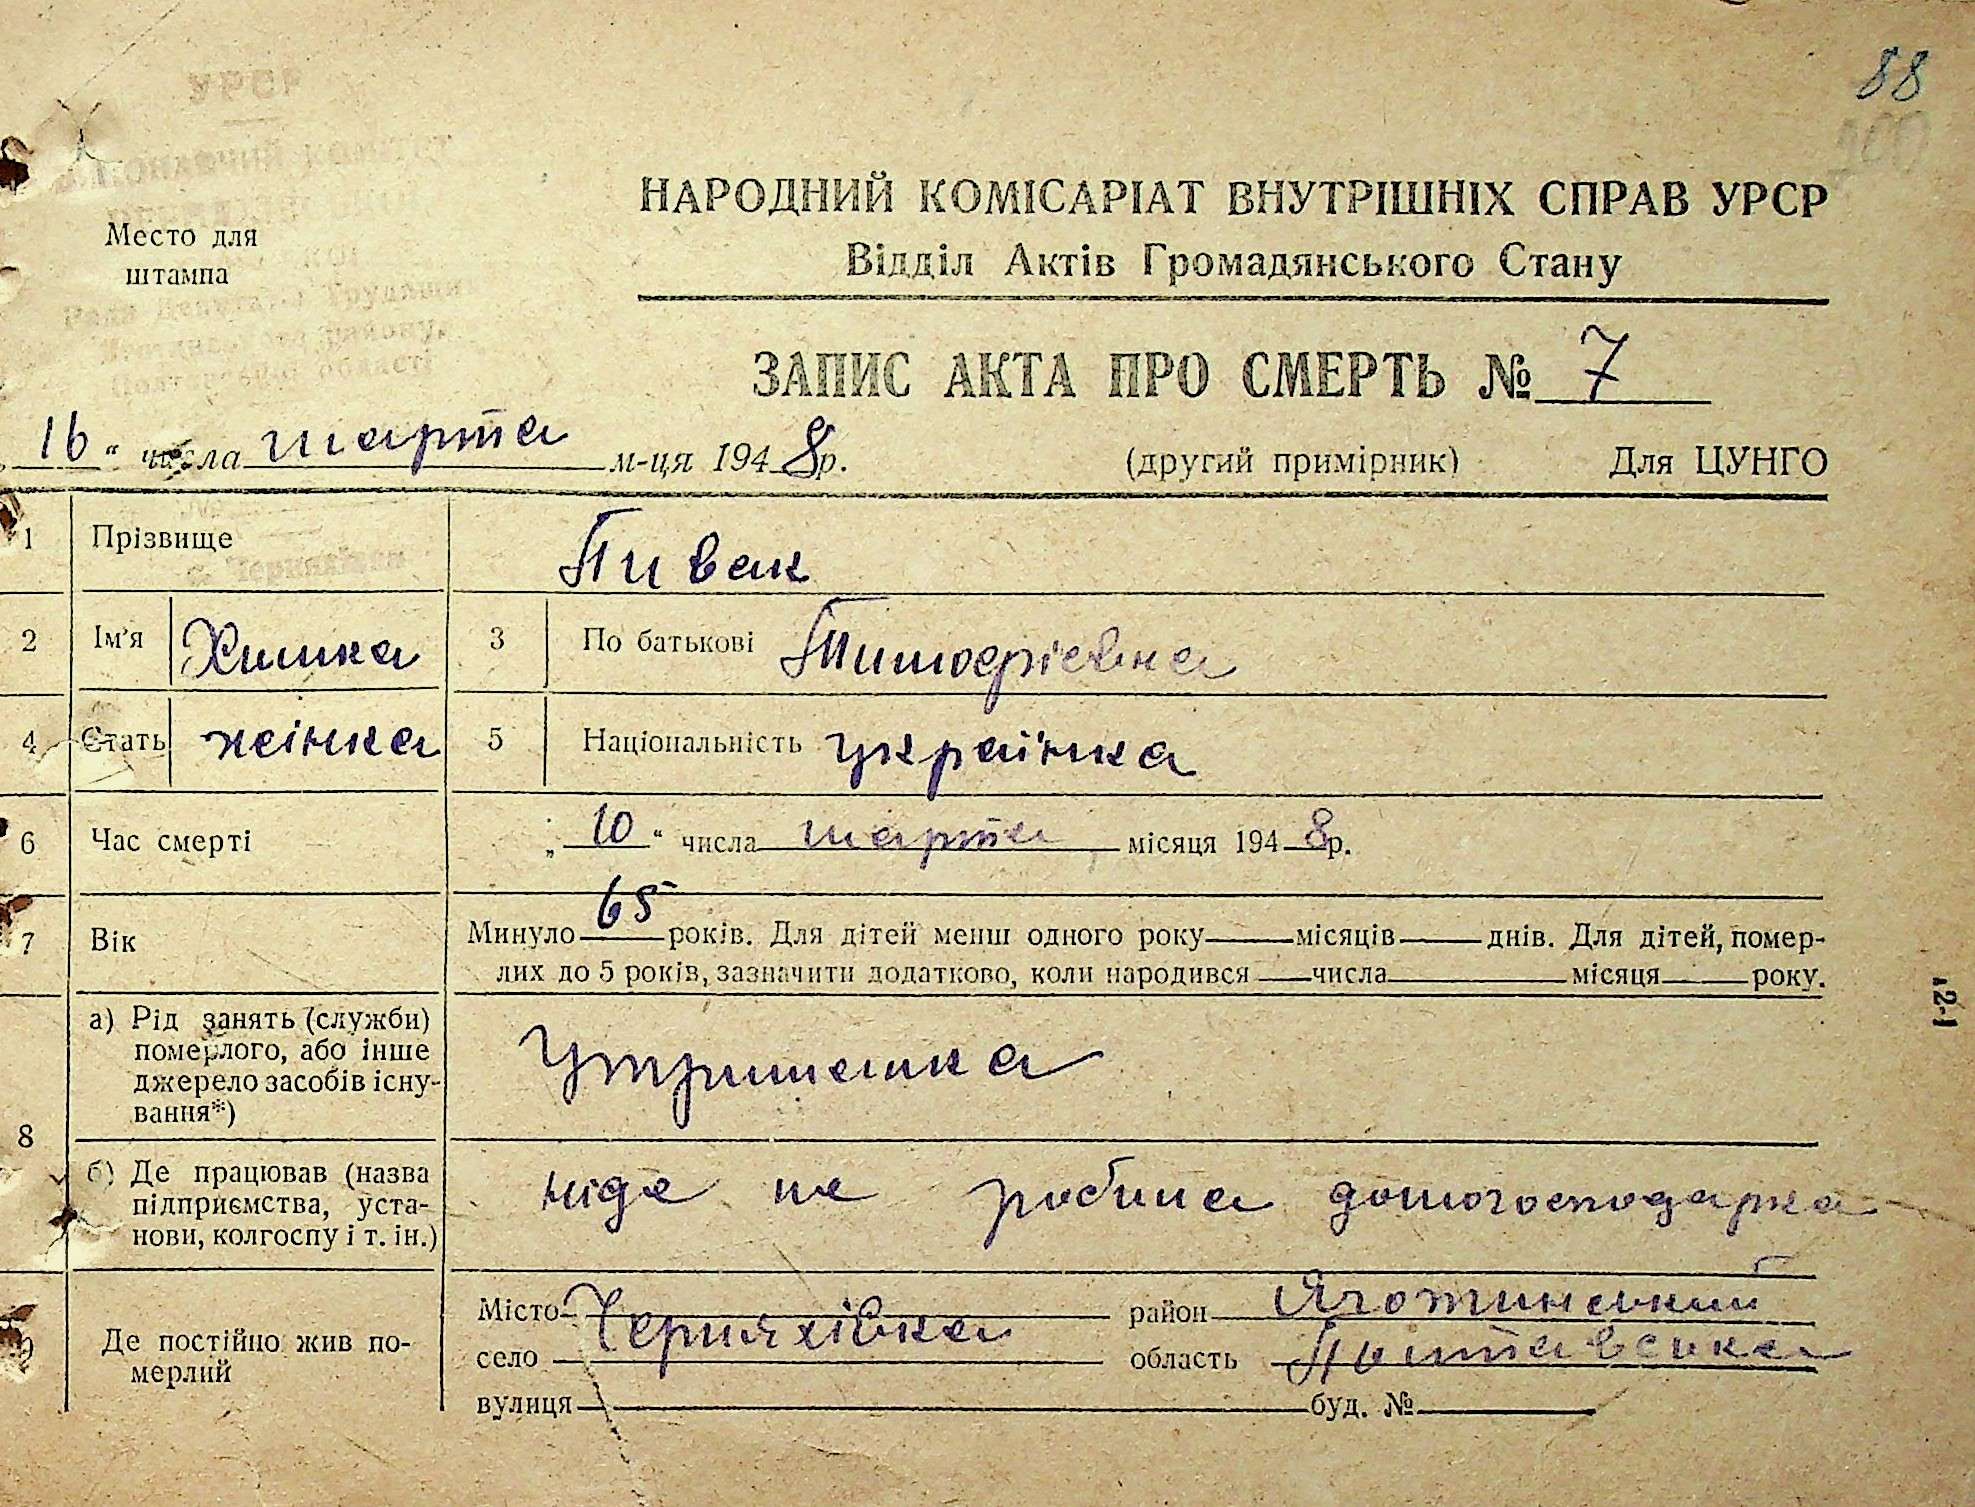 88
100
УРСР
Место для
штампа
Полтавської області
НАРОДНИЙ КОМІСАРІАТ ВНУТРІШНІХ СПРАВ УРСР
Відділ Актів Громадянського Стану
ЗАПИС АКТА ПРО СМЕРТЬ № 7
„ 16 “ числа марта м-ця 1948р. (другий примірник) Для ЦУНГО
1 Прізвище Пивак
2 Ім’я Химка 3 По батькові Тимофієвна
4 Стать жінка 5 Національність українка
6 Час смерті „ 10 “ числа марта місяця 1948р.
7 Вік Минуло 65 років. Для дітей менш одного року місяців днів. Для дітей, помер-
лих до 5 років, зазначити додатково, коли народився числа місяця року.
8 а) Рід занять (служби)
померлого, або інше
джерело засобів існу-
вання*)
Утриманка
б) Де працював (назва
підприємства, уста-
нови, колгоспу і т. ін.)
ніде не робила домогосподарка
9 Де постійно жив по-
мерлий
Місто Черняхівка район Яготинський
село область Полтавська
вулиця буд. №
2-1